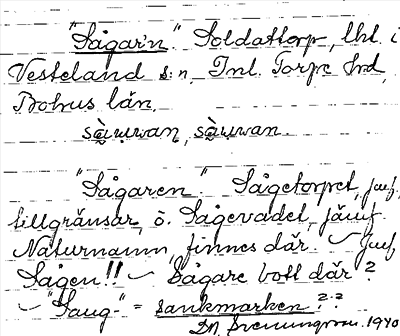 "Sågar'n". Soldattorp, lht. i
Vesteland s:n, Inl. Torpe hd,
Bohus län.
"Sågaren". Sågetorpet, jmf.
tillgränsar, ö. Sågevadet, jämf.
Naturnamn finnes där. Jmf
Sågen!! Sågare bott där?
"Saug-" = sankmarken??
1940